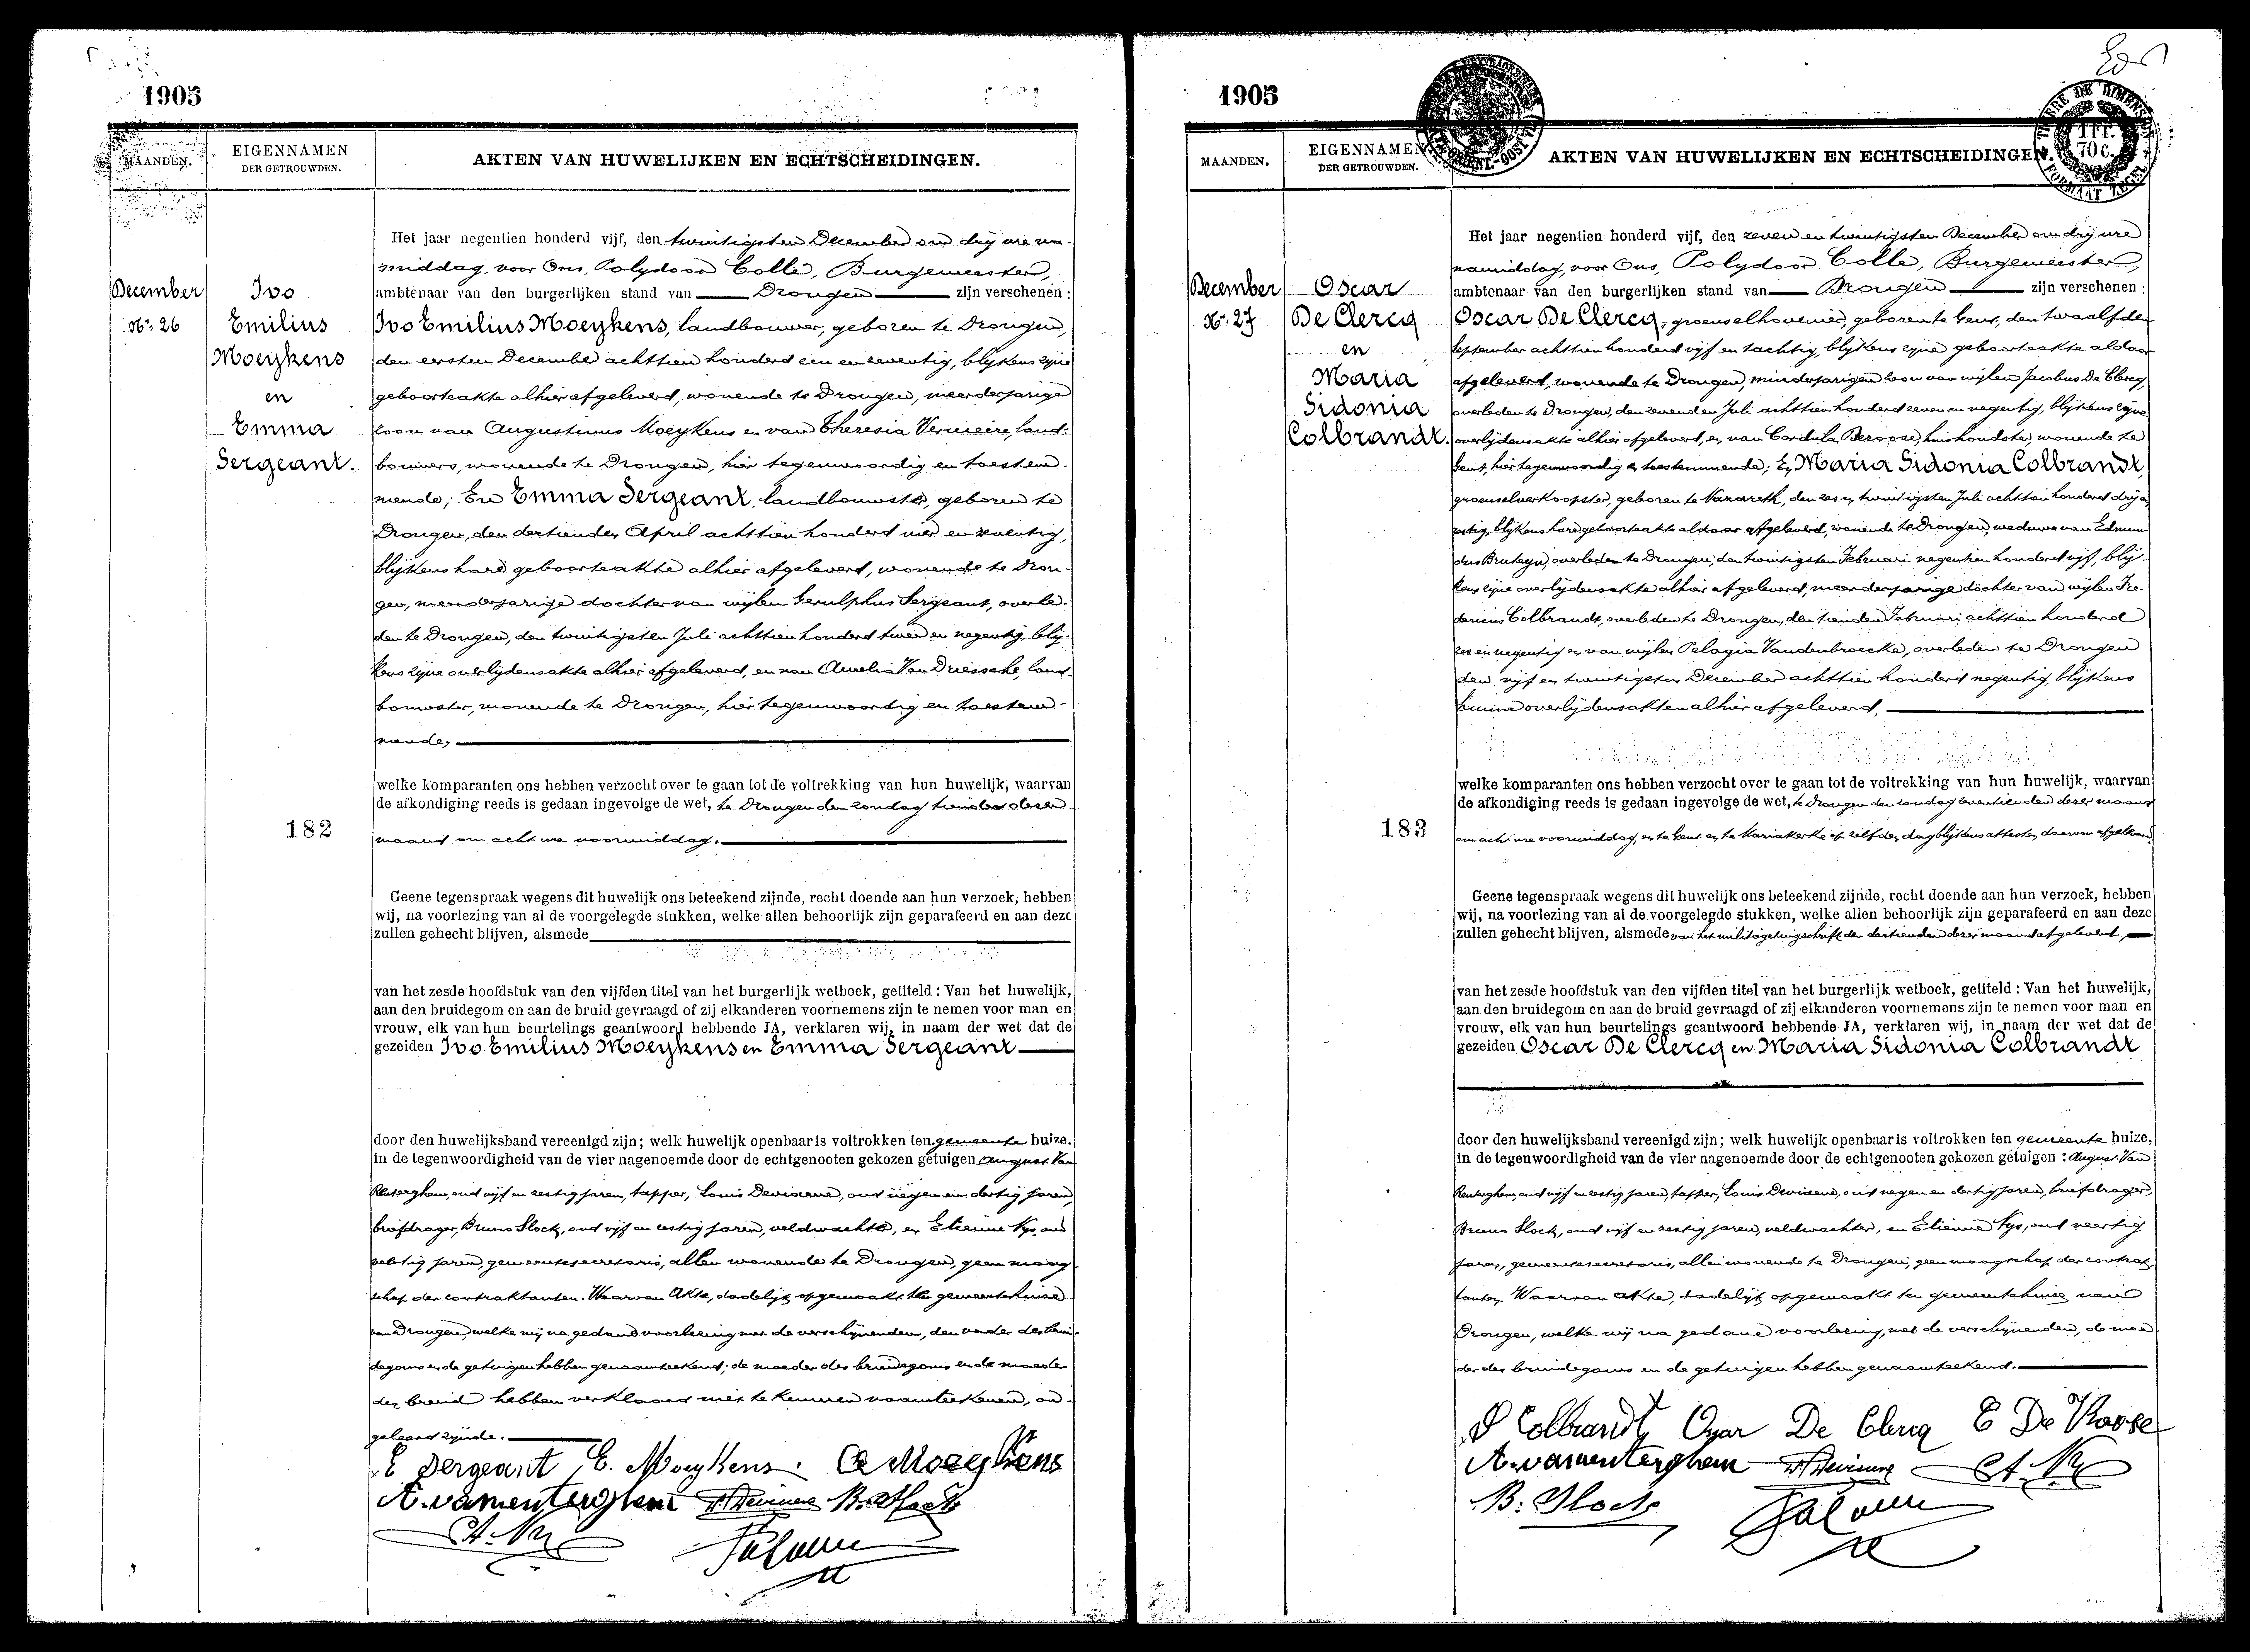 1905
MAANDEN.
EIGENNAMEN
DER GETROUWDEN.
AKTEN VAN HUWELIJKEN EN ECHTSCHEIDINGEN.
December
No. 26
Ivo
Emilius
Moeykens
en
Emma
Sergeant.
182
Het jaar negentien honderd vijf, den twintigsten December om drij ure na-
middag, voor Ons, Polydoor Colle, Burgemeester,
ambtenaar van den burgerlijken stand van Drongen zijn verschenen :
Ivo Emilius Moeykens, landbouwer, geboren te Drongen,
den eersten December achttien honderd een en zeventig, blijkens zijne
geboorteakte alhier afgeleverd, wonende te Drongen, meerderjarige
zoon van Augustinus Moeykens en van Theresia Vermeire, land-
bouwers, wonende te Drongen, hier tegenwoordig en toestem-
mende; En Emma Sergeant, landbouwster, geboren te
Drongen, den dertienden April achttien honderd vier en zeventig,
blijkens hare geboorteakte alhier afgeleverd, wonende te Dron-
gen, meerderjarige dochter van wijlen Gerulphus Sergeant, overle-
den te Drongen, den twintigsten Juli achttien honderd twee en negentig, blij-
kens zijne overlijdensakte alhier afgeleverd, en van Amelia Van Driessche, land-
bouwster, wonende te Drongen, hier tegenwoordig en toestem-
mende,
welke komparanten ons hebben verzocht over te gaan tot de voltrekking van hun huwelijk, waarvan
de afkondiging reeds is gedaan ingevolge de wet, te Drongen den zondag tienden dezer
maand om acht ure voormiddag.
Geene tegenspraak wegens dit huwelijk ons beteekend zijnde, recht doende aan hun verzoek, hebben
wij, na voorlezing van al de voorgelegde stukken, welke allen behoorlijk zijn geparafeerd en aan deze
zullen gehecht blijven, alsmede
van het zesde hoofdstuk van den vijfden titel van het burgerlijk wetboek, getiteld : Van het huwelijk,
aan den bruidegom en aan de bruid gevraagd of zij elkanderen voornemens zijn te nemen voor man en
vrouw, elk van hun beurtelings geantwoord hebbende JA, verklaren wij, in naam der wet dat de
gezeiden Ivo Emilius Moeykens en Emma Sergeant
door den huwelijksband vereenigd zijn; welk huwelijk openbaar is voltrokken ten gemeente huize.
in de tegenwoordigheid van de vier nagenoemde door de echtgenooten gekozen getuigen August Van
Renterghem, oud vijf en zestig jaren, tapper, Louis Deviaene, oud negen en dertig jaren,
briefdrager, Bruno Slock, oud vijf en zestig jaren, veldwachter, en Etienne Nys, oud
veertig jaren, gemeentesecretaris, allen wonende te Drongen, geen maag-
schap der contraktanten. Waarvan Akte, dadelijk opgemaakt ten gemeentehuize
van Drongen, welke wij na gedane voorlezing met de verschijnenden, den vader des brui-
degoms en de getuigen hebben genaamteekend; de moeder des bruidegoms en de moeder
der bruid hebben verklaard niet te kunnen naamteekenen, on-
geleerd zijnde.
E Sergeant E. Moeykens. A Moeykens
A. vanrenterghem Deviaene B. Slock
Et. Nys
1905
MAANDEN.
EIGENNAMEN
DER GETROUWDEN.
AKTEN VAN HUWELIJKEN EN ECHTSCHEIDINGEN.
1 FR.
70 c.
December
No. 27
Oscar
De Clercq
en
Maria
Sidonia
Colbrandt.
183
Het jaar negentien honderd vijf, den zeven en twintigsten December om drij ure
namiddag, voor Ons, Polydoor Colle, Burgemeester,
ambtenaar van den burgerlijken stand van Drongen zijn verschenen :
Oscar De Clercq, groenselhovenier, geboren te Gent, den twaalfden
September achttien honderd vijf en tachtig, blijkens zijne geboorteakte aldaar
afgeleverd, wonende te Drongen, minderjarigen zoon van wijlen Jacobus De Clercq,
overleden te Drongen, den zevenden Juli achttien honderd zeven en negentig, blijkens zijne
overlijdensakte alhier afgeleverd, en van Cordula Deroose, huishoudster, wonende te
Gent, hier tegenwoordig en toestemmende; En Maria Sidonia Colbrandt,
groenselverkoopster, geboren te Nazareth, den zes en twintigsten Juli achttien honderd drij en
zestig, blijkens hare geboorteakte aldaar afgeleverd, wonende te Drongen, weduwe van Edmun-
dus Bruteyn, overleden te Drongen, den twintigsten Februari negentien honderd vijf, blij-
kens zijne overlijdensakte alhier afgeleverd, meerderjarige dochter van wijlen Fre-
dericus Colbrandt, overleden te Drongen, den tienden Februari achttien honderd
zes en negentig en van wijlen Pelagia Vandenbroecke, overleden te Drongen
den vijf en twintigsten December achttien honderd negentig, blijkens
hunne overlijdensakten alhier afgeleverd,
welke komparanten ons hebben verzocht over te gaan tot de voltrekking van hun huwelijk, waarvan
de afkondiging reeds is gedaan ingevolge de wet, te Drongen den zondag zeventienden dezer maand
om acht ure voormiddag, en te Gent en te Mariakerke op zelfden dag blijkens attesten daarvan afgeleverd.
Geene tegenspraak wegens dit huwelijk ons beteekend zijnde, recht doende aan hun verzoek, hebben
wij, na voorlezing van al de voorgelegde stukken, welke allen behoorlijk zijn geparafeerd en aan deze
zullen gehecht blijven, alsmede van het militiegetuigschrift den dertienden dezer maand afgeleverd,
van het zesde hoofdstuk van den vijfden titel van het burgerlijk wetboek, getiteld : Van het huwelijk,
aan den bruidegom en aan de bruid gevraagd of zij elkanderen voornemens zijn te nemen voor man en
vrouw, elk van hun beurtelings geantwoord hebbende JA, verklaren wij, in naam der wet dat de
gezeiden Oscar De Clercq en Maria Sidonia Colbrandt
door den huwelijksband vereenigd zijn; welk huwelijk openbaar is voltrokken ten gemeente huize,
in de tegenwoordigheid van de vier nagenoemde door de echtgenooten gekozen getuigen : August Van
Renterghem, oud vijf en zestig jaren, tapper, Louis Deviaene, oud negen en dertig jaren, briefdrager,
Bruno Slock, oud vijf en zestig jaren, veldwachter, en Etienne Nys, oud veertig
jaren, gemeentesecretaris, allen wonende te Drongen, geen maagschap der contrak-
tanten. Waarvan akte, dadelijk opgemaakt ten gemeentehuize van
Drongen, welke wij na gedane voorlezing, met de verschijnenden, de moe-
der des bruidegoms en de getuigen hebben genaamteekend.
S Colbrandt Oscar De Clercq C De Roose
A. vanrenterghem Deviaene Et. Nys
B. Slock